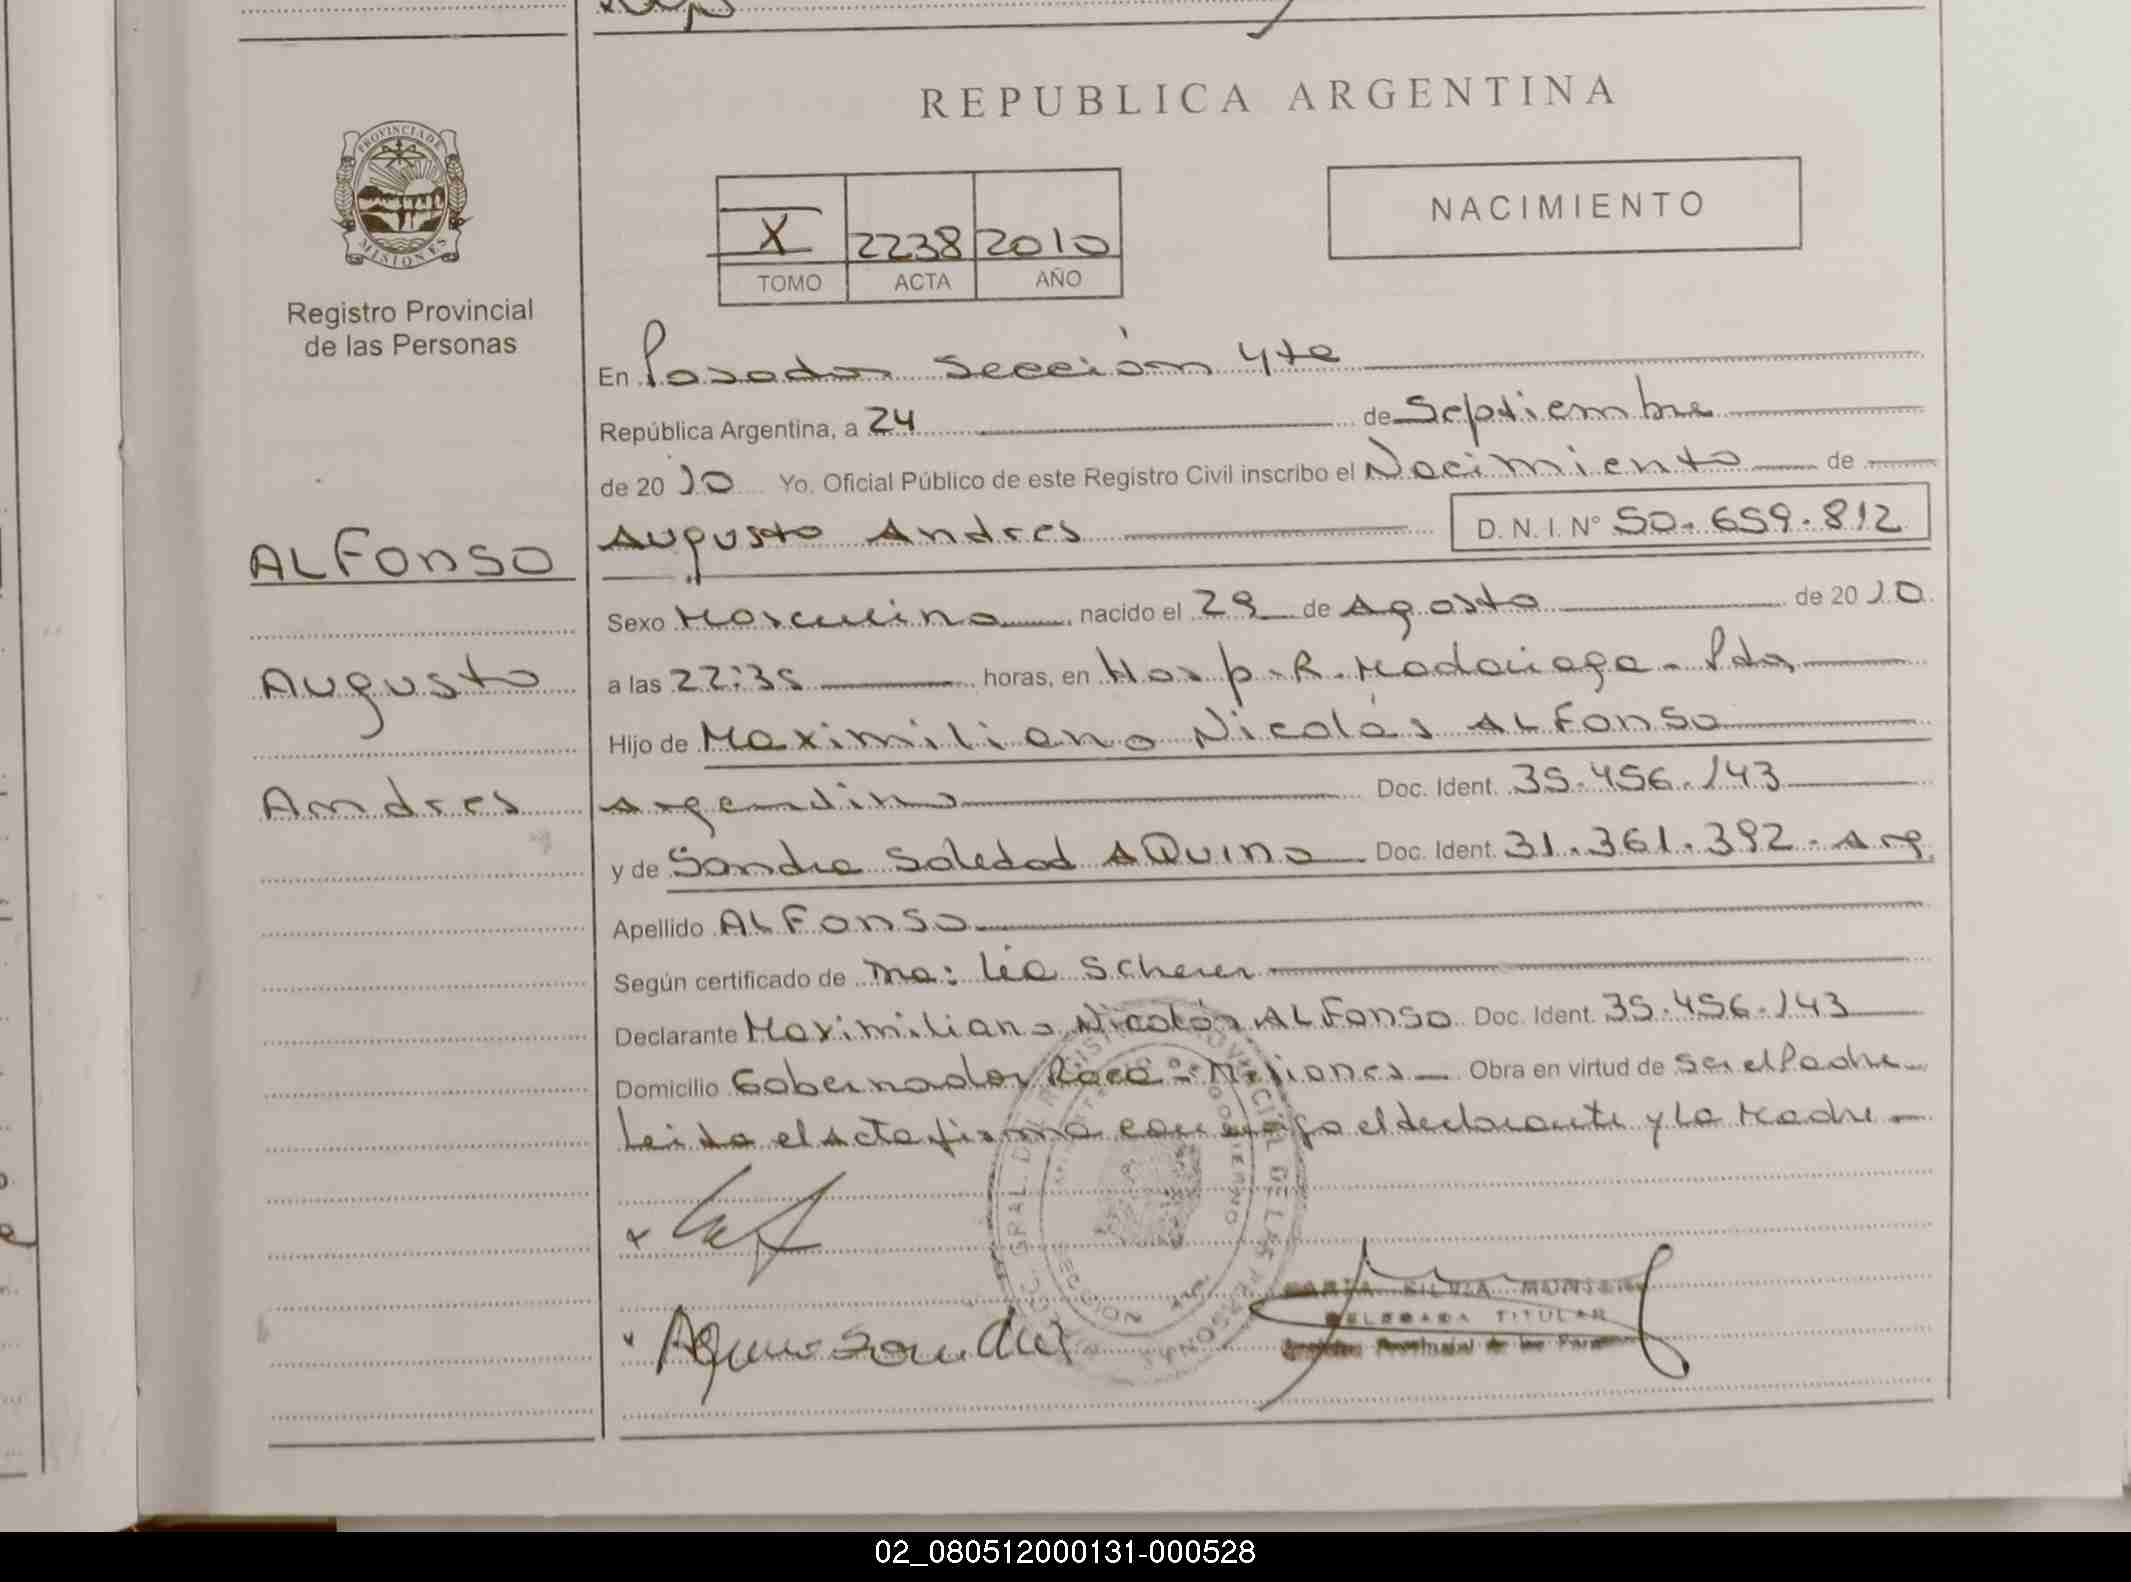 REPUBLICA ARGENTINA
PROVINCIA DE MISIONES
Registro Provincial
de las Personas
X 2238 2010
TOMO ACTA AÑO
NACIMIENTO
En Posadas Sección 4ta
República Argentina, a 24 de Septiembre
de 2010 Yo, Oficial Público de este Registro Civil inscribo el Nacimiento de
Augusto Andres D.N.I. Nº 50.659.812
ALFONSO
Augusto
Andres
Sexo Masculino nacido el 29 de Agosto de 2010
a las 22:35 horas, en Hosp. R. Madariaga - Pdas
Hijo de Maximiliano Nicolás ALFONSO
Argentino Doc. Ident. 35.456.143
y de Sandra Soledad AQUINO Doc. Ident. 31.361.392 - Arg.
Apellido ALFONSO
Según certificado de ma: Lia Scherer
Declarante Maximiliano Nicolás ALFONSO Doc. Ident. 35.456.143
Domicilio Gobernador Roca - Misiones Obra en virtud de ser el Padre
Leida el acta firma conmigo el declarante y la Madre
Aquino Sandra
SILVIA
DELEGADA TITULAR
Provincial de las
02_080512000131-000528